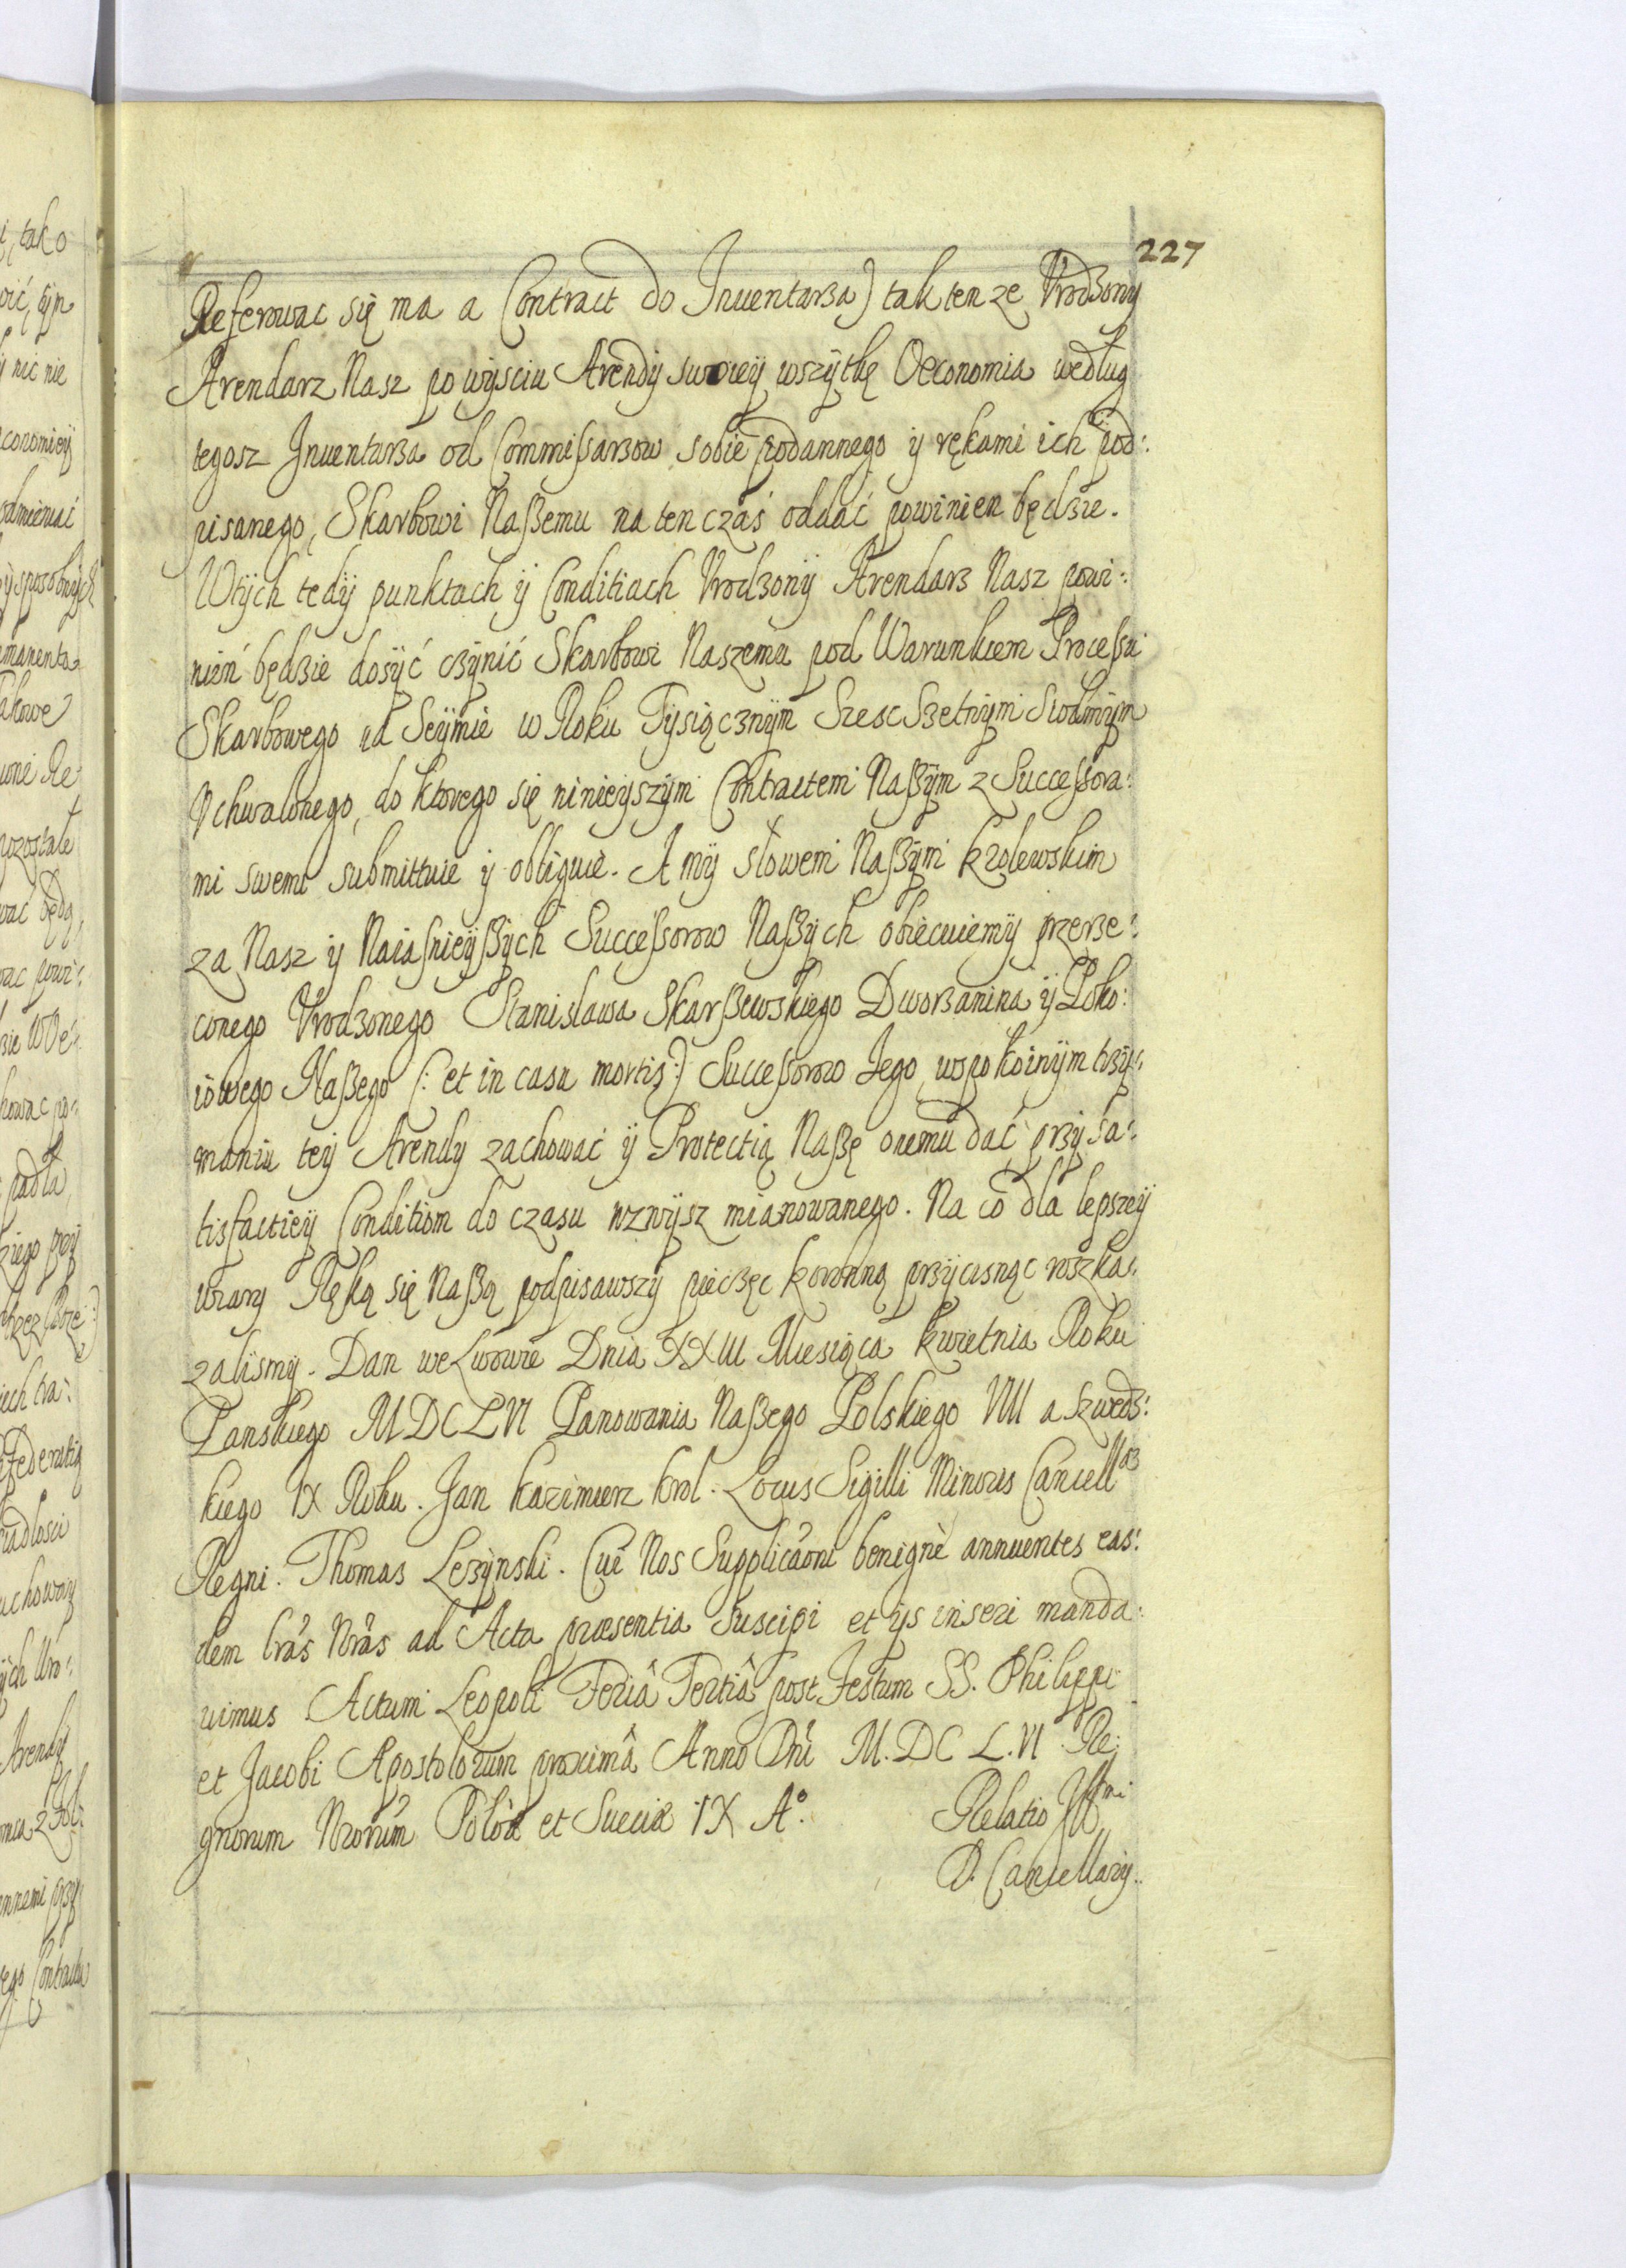 227
Referowac się ma a Contract do Inuentarza) tak tenze Vrodzony
Arendarz Nasz po wyisciu Arendy swoiey wszytkę Oeconomia według
tegosz Inuentarza od Commissarzow sobie podannego y rękami ich pod:
pisanego, Skarbowi Naszemu na ten czas oddać powinien będzie.
Wtych tedy punktach y Conditiach Vrodzony Arendarz Nasz powi:
nien będzie dosyć czynić Skarbowi Naszemu pod Warunkiem Processu
Skarbowego na Seymie w Roku Tysiącznym Szesc Szetnym Siodmym
Vchwalonego, do ktorego się ninieyszym Contractem Naszym z Successora:
mi swemi submittuie y obliguie. A my słowem Naszym krolewskim
za Nasz y Naiasnieyszych Successorow Naszych obiecuiemy przerze:
conego Vrodzonego Stanisława Skarszewskiego Dworzanina y Poko:
iowego Naszego (: et in casu mortis:) Successorow Iego, wspokoinym trzy:
maniu tey Arendy zachować y Protectią Naszę onemu dać przy sa:
tisfactiey Conditiom do czasu wzwysz mianowanego. Na co dla lepszey
wiary Ręką się Naszą podpisawszy pieczęc koronną przycisnąc rozka:
zalismy. Dan we Lwowie Dnia XXIII Miesiąca kwietnia Roku
Panskiego MDCLVI Panowania Naszego Polskiego VIII a Szwedz:
kiego IX Roku. Jan Kazimierz krol. Locus Sigilli Minoris Cancell
Regni. Thomas Lezynski. Cui Nos Supplicaoni benignè annuentes eas:
dem Lras Nras ad Acta præsentia suscipi et ijs inseri manda:
uimus Actum Leopoli Feriâ Tertiâ post Festum SS. Philippi
et Jacobi Apostolorum proximâ Anno Dni M.DC L.VI Re:
gnorum Nrorum Polôæ et Sueciæ IX Aº. Relatio Ill
D. Cancellarij.